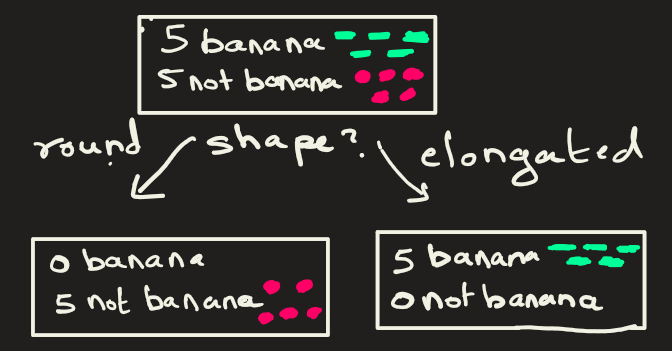 5 banana
5 not banana
round shape? elongated
0 banana
5 not banana
5 banana
0 not banana